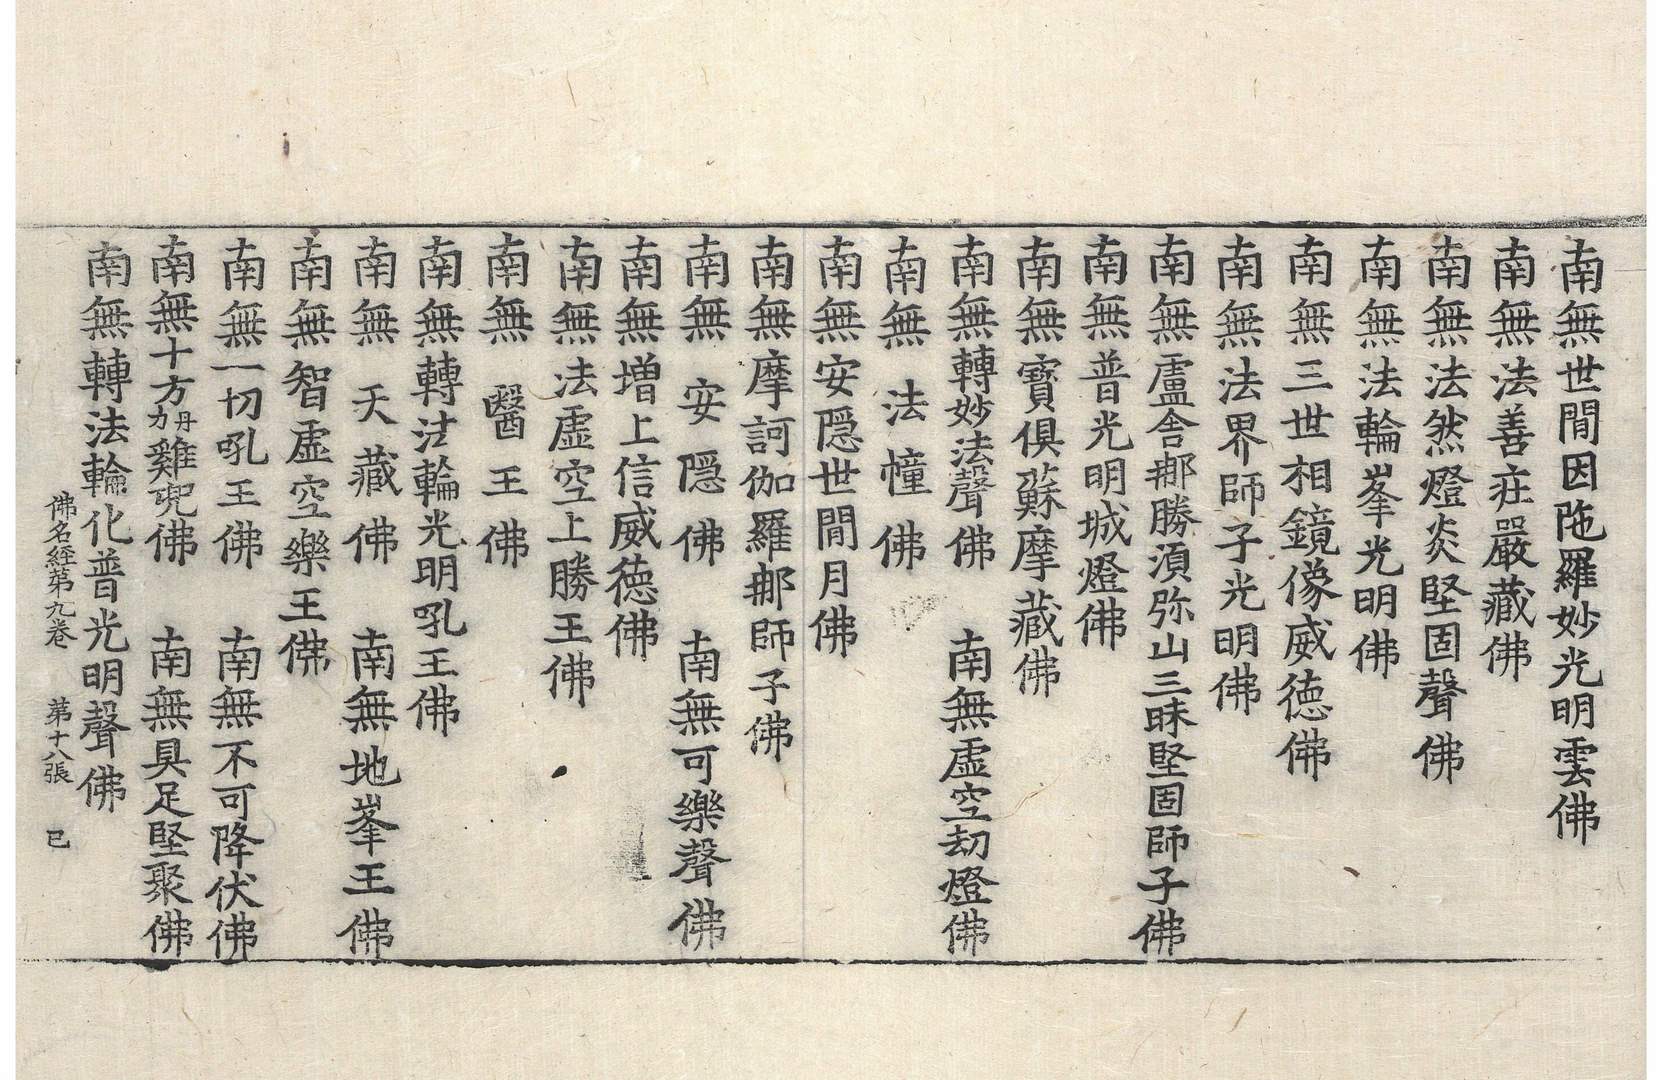 南無世間因陁羅妙光明雲佛
南無法善庄嚴藏佛
南無法然燈炎堅固聲佛
南無法輪峯光明佛
南無三世相鏡像威德佛
南無法界師子光明佛
南無盧舍那勝湏弥山三昧堅固師子佛
南無普光明城燈佛
南無寶俱蘇摩藏佛
南無轉妙法聲佛 南無虛空劫燈佛
南無法幢佛
南無安隱世間月佛
南無摩訶伽羅那師子佛
南無安隱佛 南無可樂聲佛
南無增上信威德佛
南無法虛空上勝王佛
南無醫王佛
南無轉法輪光明吼王佛
南無天藏佛 南無地峯王佛
南無智虛空樂王佛
南無一切吼王佛 南無不可降伏佛
南無十方丹力雞兜佛 南無具足堅聚佛
南無轉法輪化普光明聲佛
佛名經第九卷 第十八張 巳